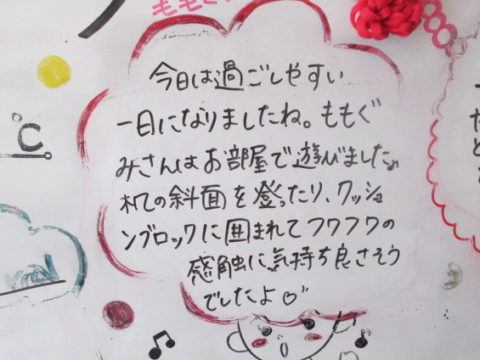 今日は過ごしやすい
一日になりましたね。ももぐ
みさんはお部屋で遊びました♪
机の斜面を登ったり、クッショ
ンブロックに囲まれてフワフワの
感触に気持ち良さそう
でしたよ♡
℃